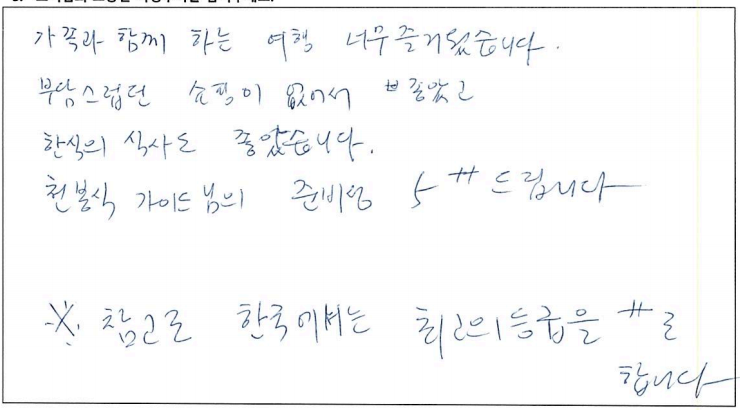 가족과 함께 하는 여행 너무 즐거웠습니다.
부담스럽던 쇼핑이 없어서 좋았고
한식의 식사도 좋았습니다.
천봉식 가이드님의 준비성 5 # 드립니다
※. 참고로 한국에서는 최고의 등급을 #로
합니다